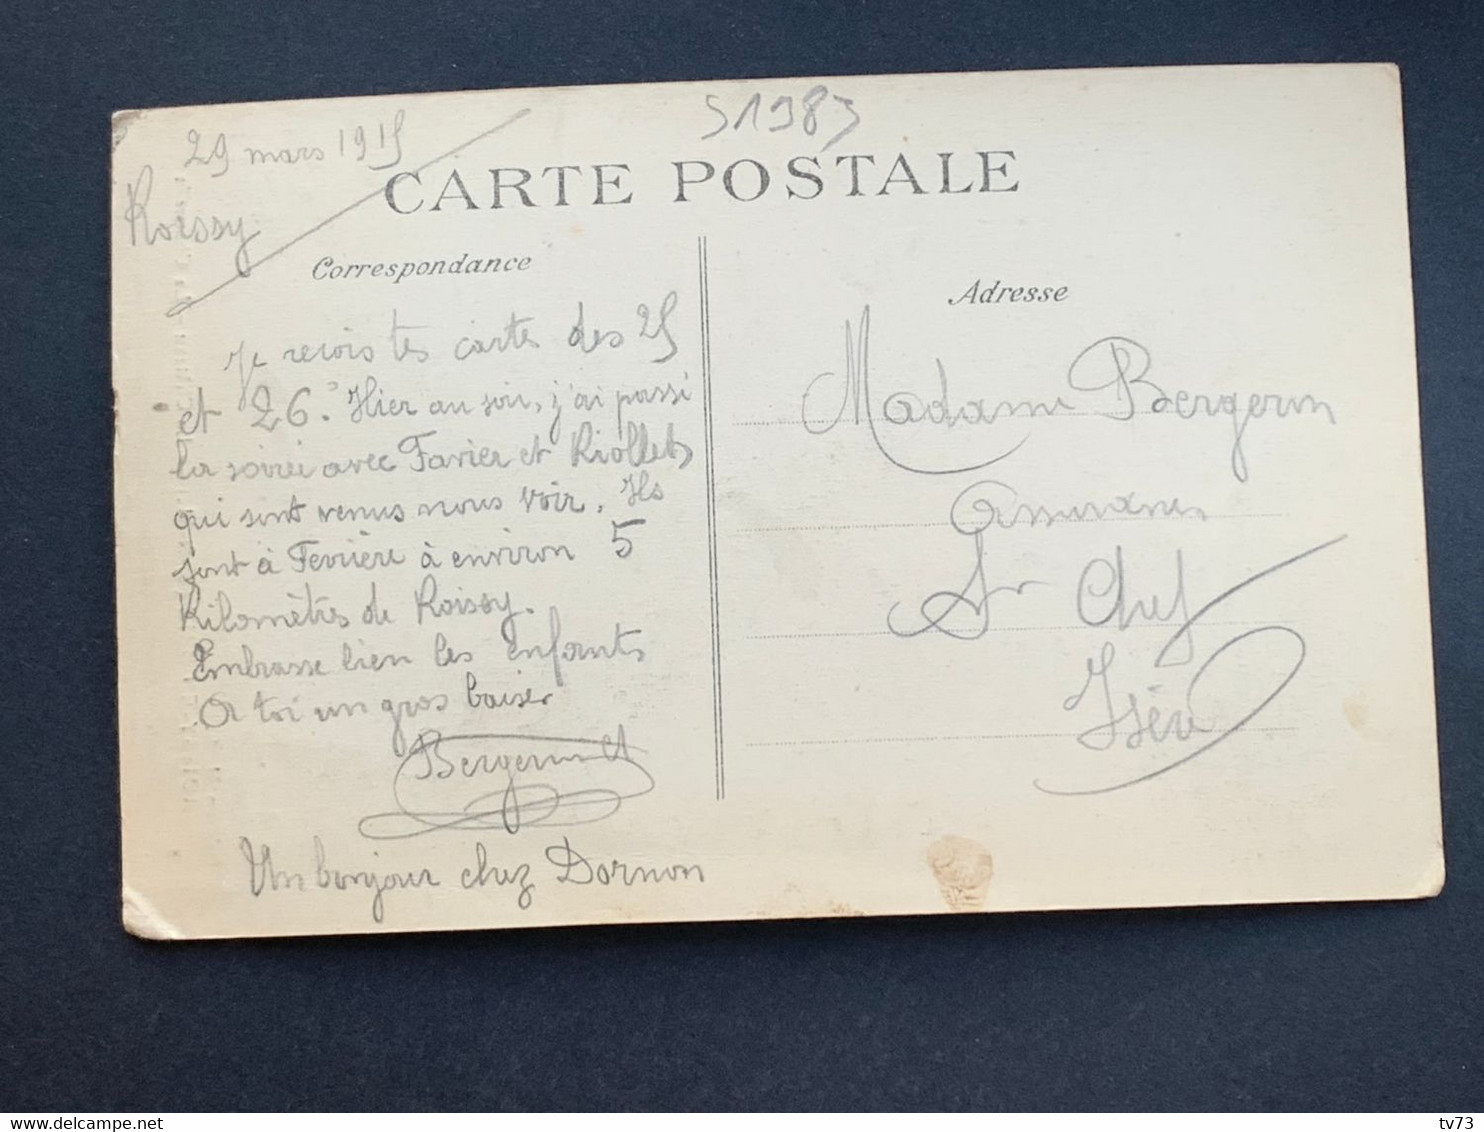 29 mars 1915
Roissy
51983
CARTE POSTALE
Correspondance
Je recois tes cartes des 25
et 26. Hier au soir, j'ai passé
la soirée avec Favier et Riollets
qui sont venus nous voir. Ils
sont à Ferrière à environ 5
Kilomètres de Roissy.
Embrasse bien les Enfants
A toi un gros baiser
Bergeron
Un bonjour chez Dornon
Adresse
Madame Bergeron
St Chef
Isère
Delcampe.net
tv73